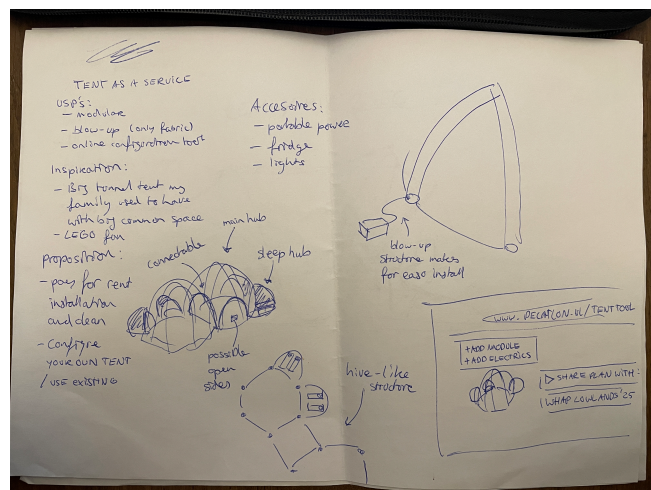 TENT AS A SERVICE
USP's:
- modular
- blow-up (only fabric)
- online configuration tool
Inspiration:
- Big tunnel tent my
family used to have
with big common space
- LEGO fan
Proposition:
- for rent
installation
and clean
- Configure
YOUR OWN TENT
/ USE EXISTING
Accesoires:
- portable power
- fridge
- lights
main hub
connectable
sleep hub
possible
open
sides
hive-like
structure
blow-up
structure makes
for ease install
WWW.DECATLON.NL/TENTTOOL
+ADD MODULE
+ADD ELECTRICS
SHARE PLAN WITH:
WHAP LOWLANDS '25